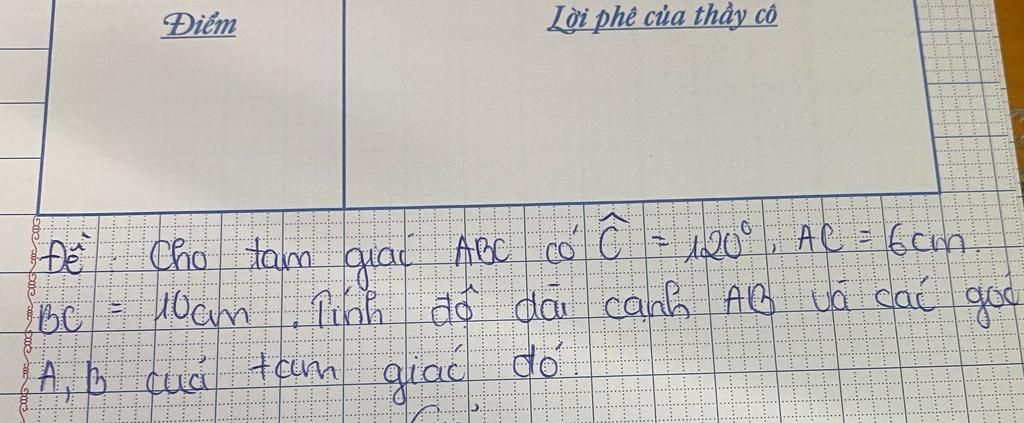 Điểm
Lời phê của thầy cô
Đề: Cho tam giác ABC có Ĉ = 120°, AC = 6cm.
BC = 10cm. Tính độ dài cạnh AB và các góc
A, B của tam giác đó.